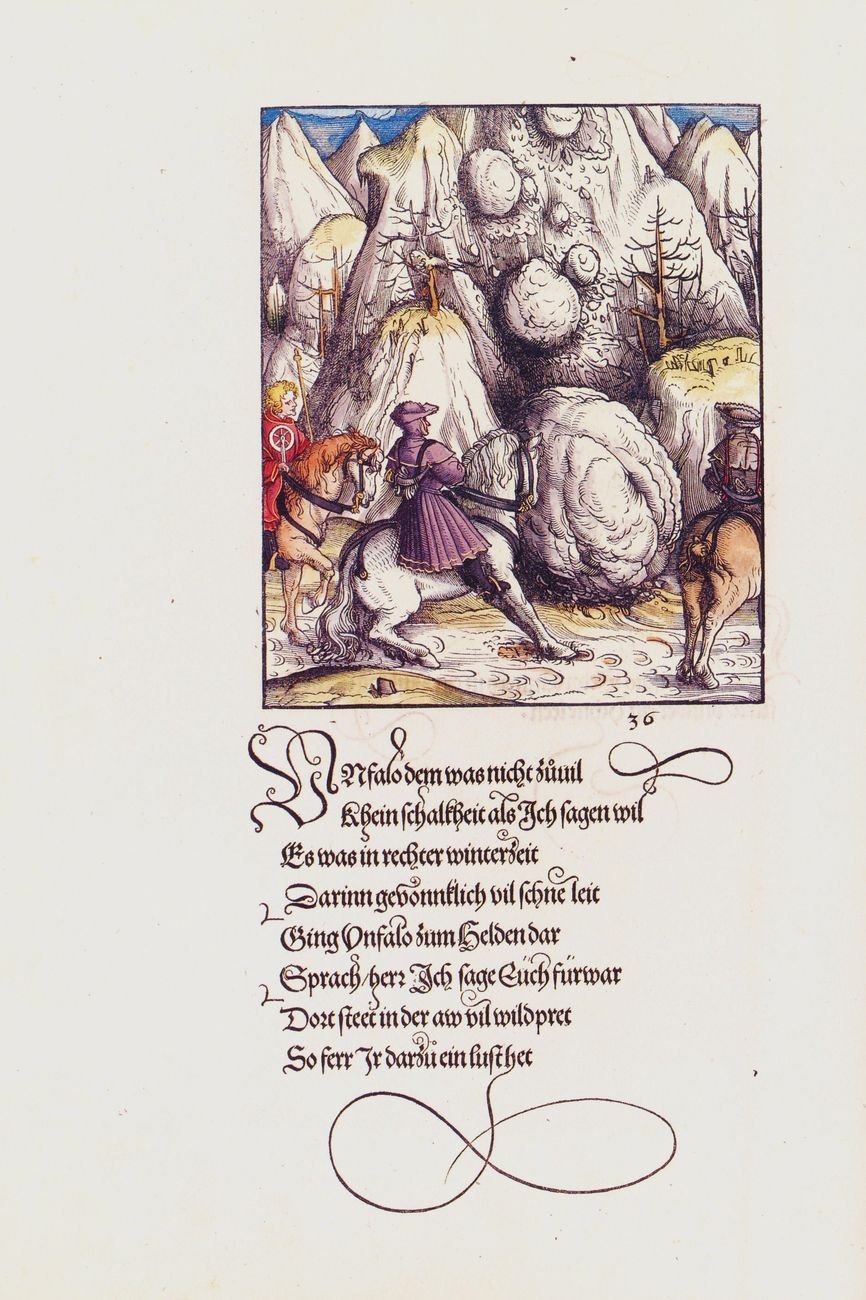 36
VNfalo dem was nicht zůuil
Khein schalkheit als Ich sagen wil
Es was in rechter winterzeit
Darinn gevonnklich vil schne leit
Ging Vnfalo zum Helden dar
Sprach/herr Ich sage Eüch fürwar
Dort steet in der aw vil wildpret
So ferr Ir darzů ein lust het